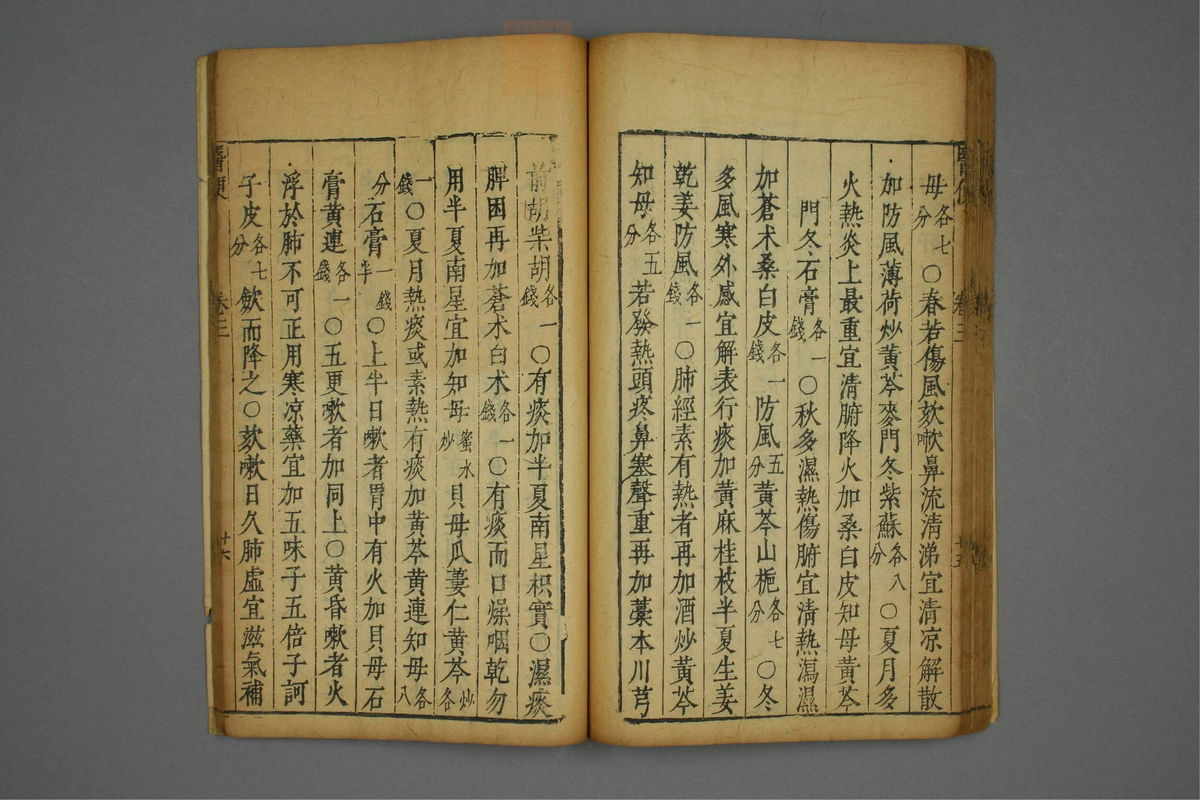 醫便 卷三 十五
母各七分○春若傷風欬嗽鼻流清涕宜清凉解散
加防風薄荷炒黃芩麥門冬紫蘇各八分○夏月多
火熱炎上最重宜清腑降火加桑白皮知母黃芩
門冬石膏各一錢○秋多濕熱傷腑宜清熱瀉濕
加蒼术桑白皮各一錢防風五分黃芩山梔各七分○冬
多風寒外感宜解表行痰加黃麻桂枝半夏生姜
乾姜防風各一錢○肺經素有熱者再加酒炒黃芩
知母各五分若發熱頭疼鼻塞聲重再加藁本川芎
前胡柴胡各一錢○有痰加半夏南星枳實○濕痰
脾困再加蒼术白术各一錢○有痰而口燥咽乾勿
用半夏南星宜加知母蜜水炒貝母瓜蔞仁黃芩炒各
一錢○夏月熱痰或素熱有痰加黃芩黃連知母各八
分石膏一錢半○上半日嗽者胃中有火加貝母石
膏黃連各一錢○五更嗽者加同上○黃昏嗽者火
浮於肺不可正用寒凉藥宜加五味子五倍子訶
子皮各七分歛而降之○欬嗽日久肺虛宜滋氣補
醫便 卷三 廿六